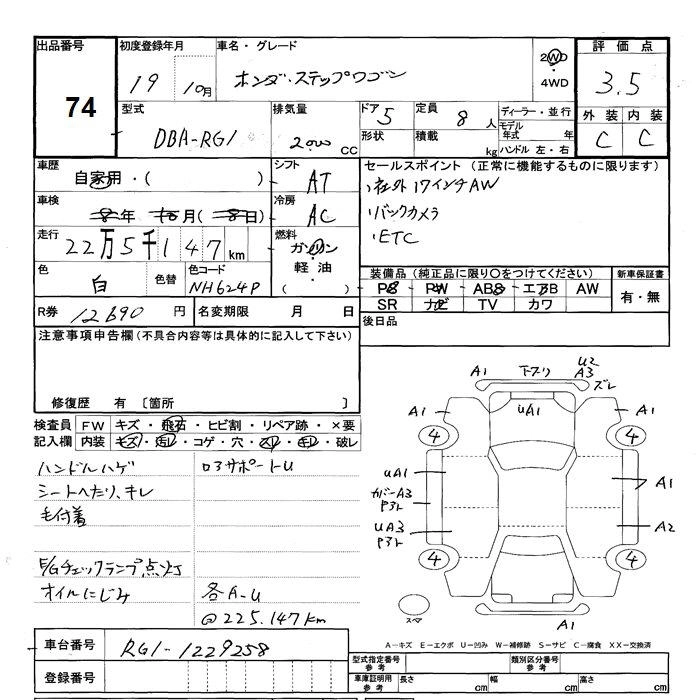 出品番号 初度登録年月 車名・グレード 評価点
74 19 10月 ホンダ・ステップワゴン 2WD ・ 4WD 3.5
型式 排気量 ドア 5 定員 8人 ディーラー・並行 外装 内装
DBA-RG1 2000 CC 形状 積載 kg モデル年式 年 C C
ハンドル 左・右
車歴 自家用・( ) シフト AT セールスポイント (正常に機能するものに限ります)
車検 8年 10月(8日) 冷房 AC ・社外17インチAW
・バックカメラ
走行 22万5千147km 燃料 ガソリン・軽油 ( ) ・ETC
色 白 色替 色コード NH624P 装備品(純正品に限り○をつけてください) 新車保証書
PS PW ABS エアB AW 有・無
SR ナビ TV カワ
R券 12690 円 名変期限 月 日 後日品
注意事項申告欄(不具合内容等は具体的に記入して下さい)
修復歴 有 〔箇所 〕
検査員 FW キズ・飛石・ヒビ割・リペア跡・×要
記入欄 内装 キズ・汚レ・コゲ・穴・スレ・キレ・破レ
ハンドルハゲ ロアサポートU
シートへたり、キレ
毛付着
E/Gチェックランプ点灯
オイルにじみ 各A-U
@225.147km
A1 下ブリ U2
A3
ズレ
A1 UA1 A1
4 4
UA1 A1
カバーA3
Pヌケ
UA3 A2
Pヌケ
4 4
スペア A1
A-キズ E-エクボ U-凹み W-補修跡 S-サビ C-腐食 XX-交換済
車台番号 RG1-1229258
登録番号
型式指定番号 参考 類別区分番号 参考
車庫証明用 参考 長さ cm 幅 cm 高さ cm